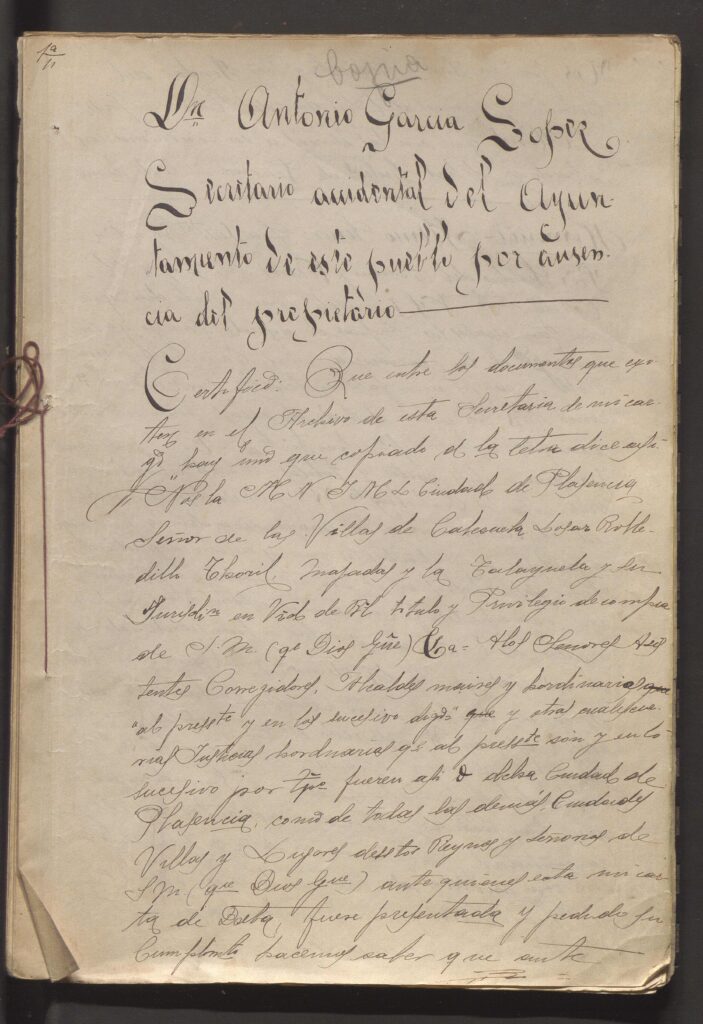 1ª
Copia
Dn Antonio Garcia Lopez
Secretario accidental del Ayun-
tamiento de este pueblo por ausen-
cia del propietario
Certifico: Que entre los documentos que exis-
ten en el Archivo de esta Secretaria de mi car-
go hay uno que copiado a la letra dice asi
"Nos la M. N. Ciudad de Plasencia
Señor de las Villas de Losar Roble-
dillo y la Talayuela y su
Jurisdin en Vid de Rl titulo y Privilegio de compra
de S. M. (qe Dios Gũe) Ca = A los Señores Asis
tentes Corregidores, Alcaldes maires y hordinarios que
al presste y en los sucesivo que y otras cualescua-
rias Justicias hordinarias qe al presste son y en lo
sucesivo por tpo fueren asi de Ciudad de
Plasencia, como de todas las demás Ciudades
Villas y Lugares destos Reynos y Señorios de
S M (que Dios Gue) ante quienes esta mi car-
ta de fuese presentada y pedido su
Cumplimto hacemos saber que ante